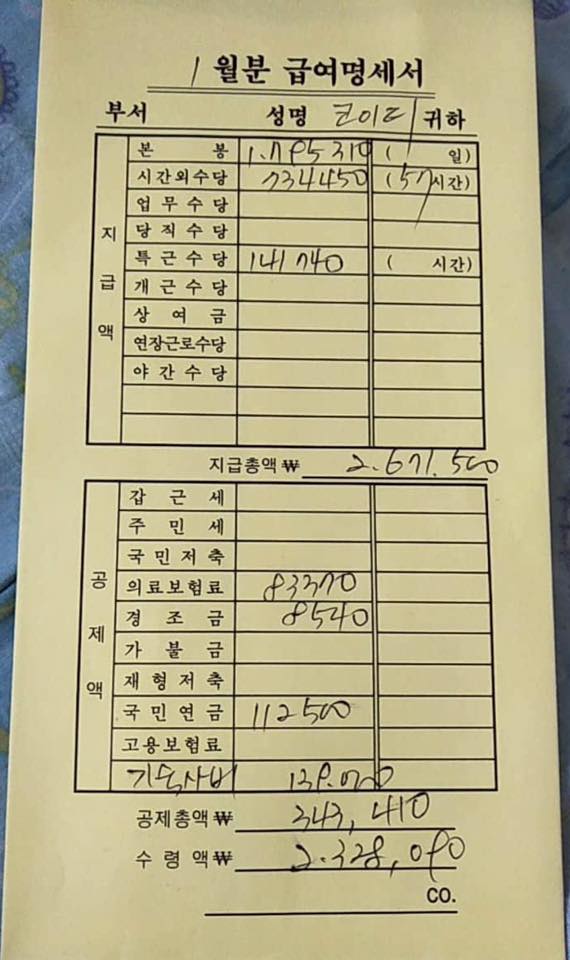 1월분 급여명세서
부서 성명 코이디 귀하
지급액
본봉 1.795310 ( 일)
시간외수당 734450 (57시간)
업무수당
당직수당
특근수당 141740 ( 시간)
개근수당
상여금
연장근로수당
야간수당
지급총액₩ 2.671.500
공제액
갑근세
주민세
국민저축
의료보험료 83370
경조금 8540
가불금
재형저축
국민연금 112500
고용보험료
기숙사비 139.000
공제총액₩ 343,410
수령액₩ 2.328,090
CO.